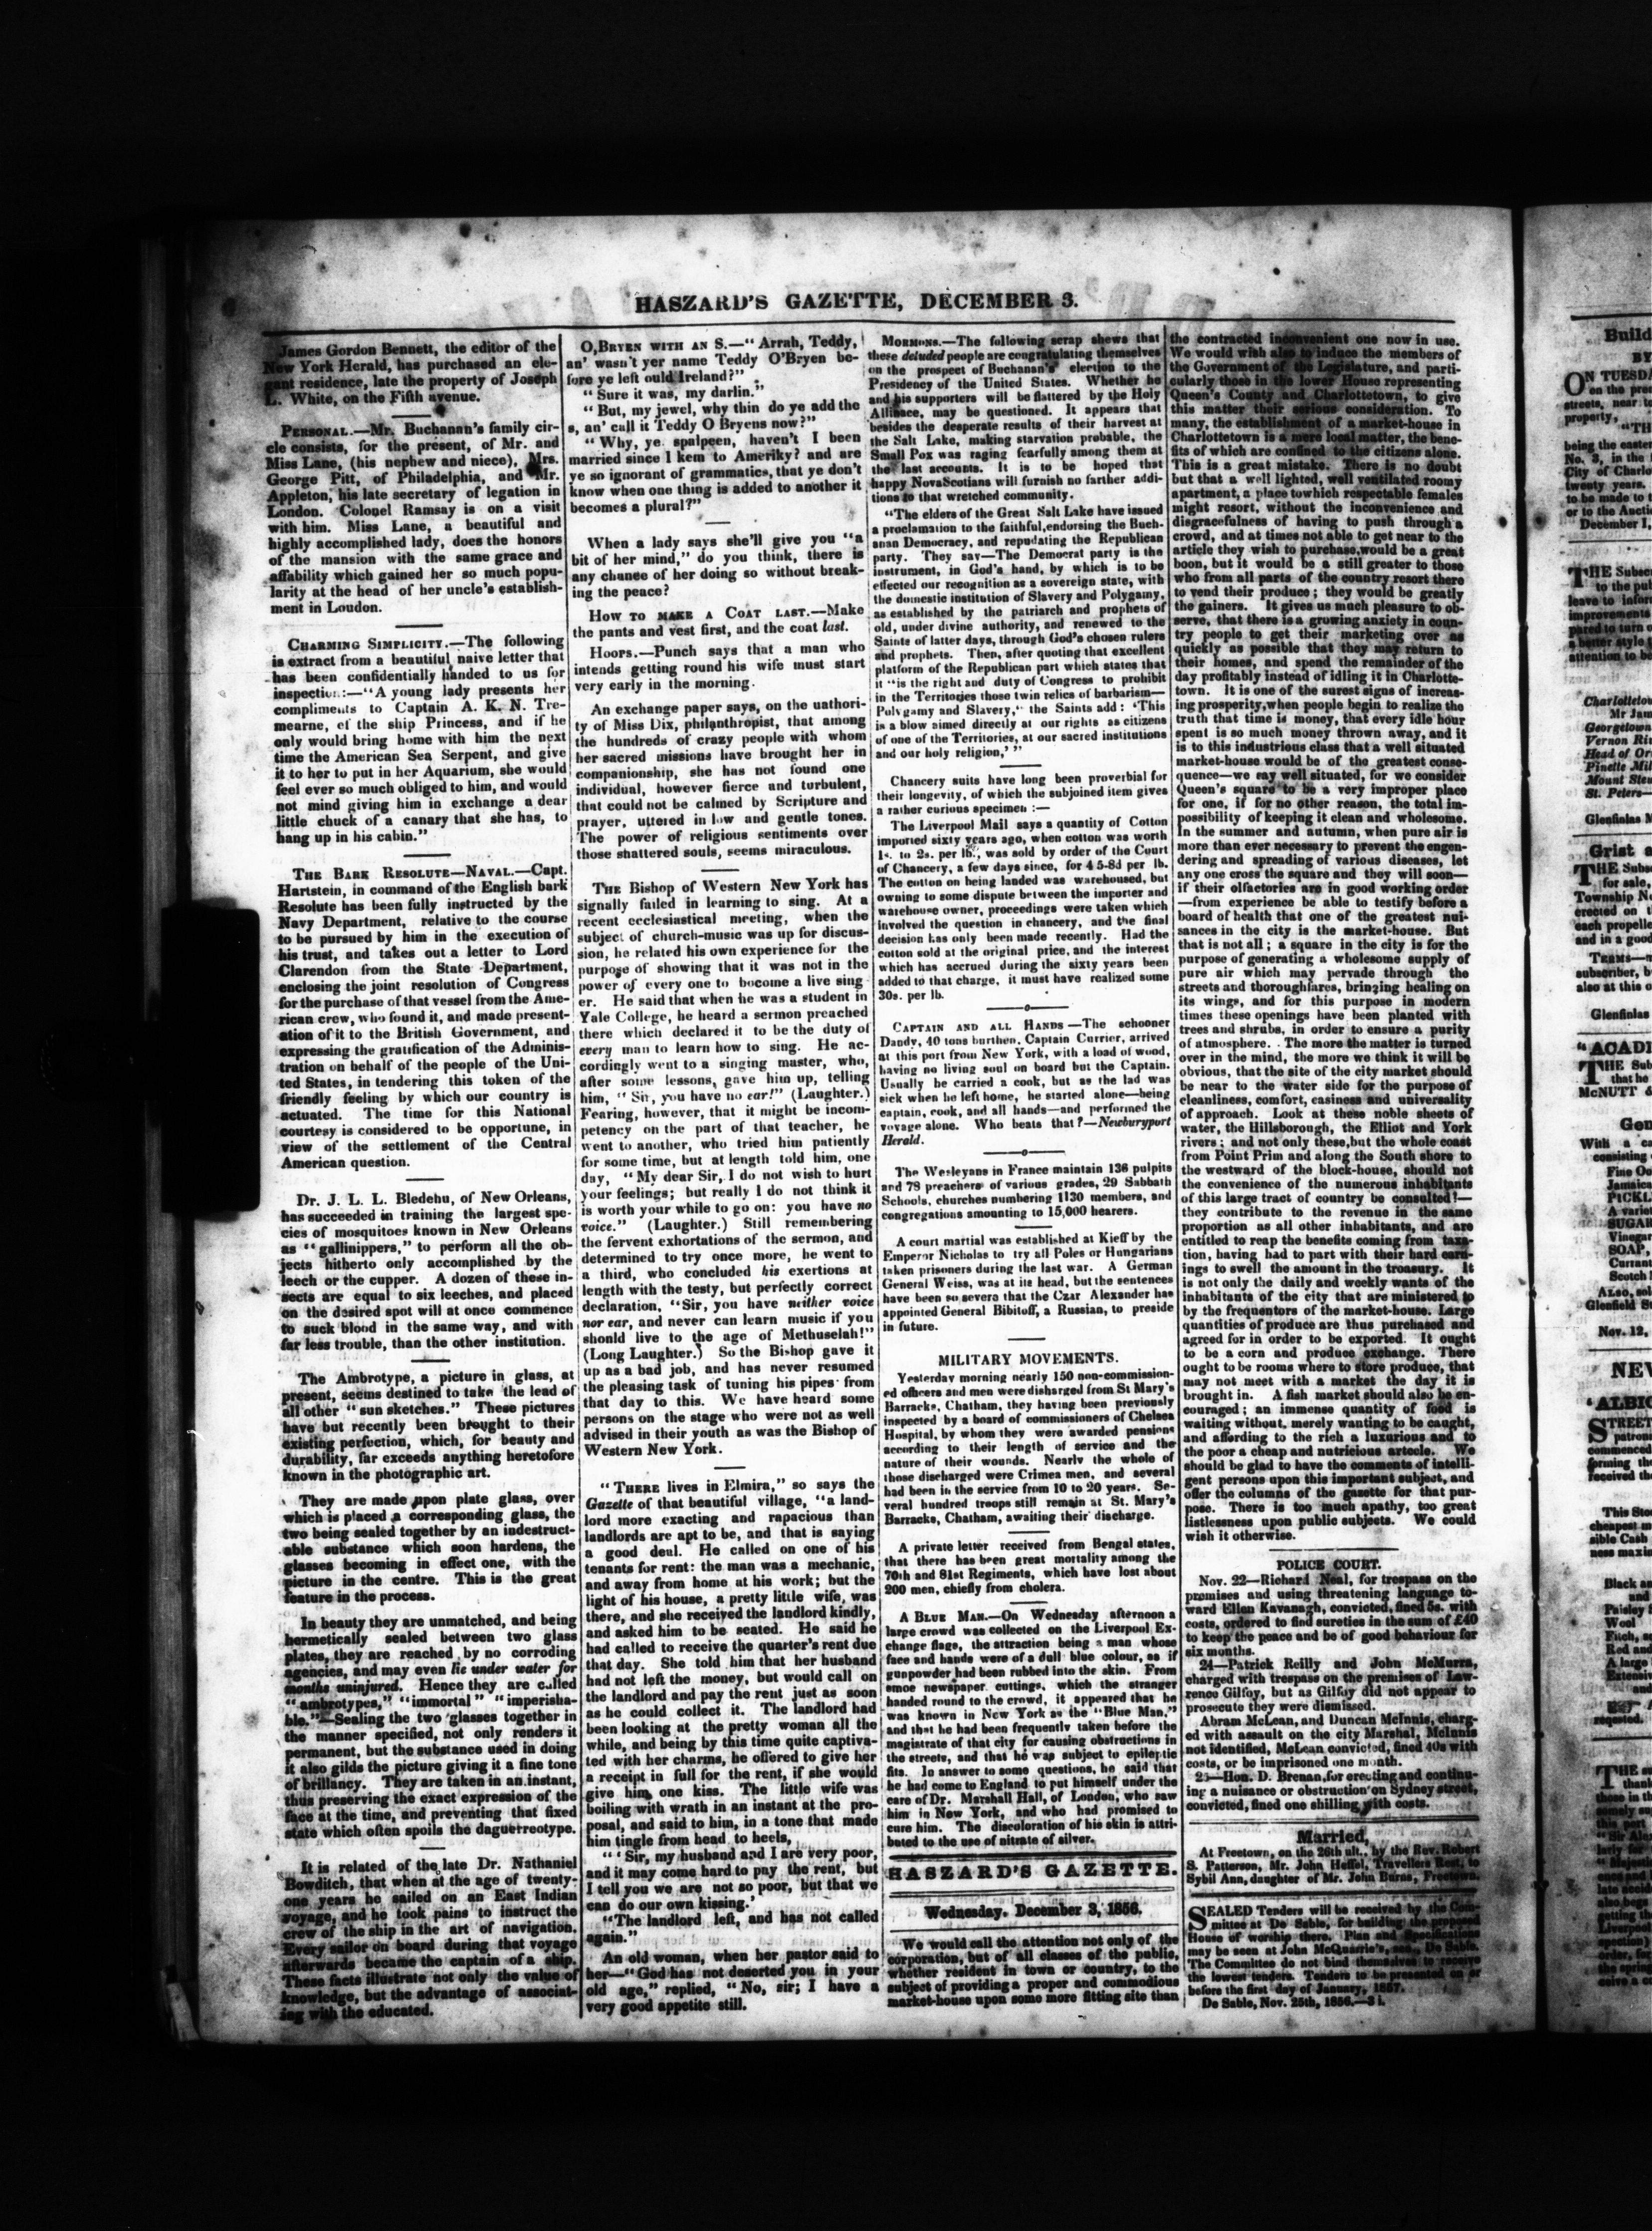 HASZARD'S GAZETTE, DECEMBER 3.
James Gordon Bennett, the editor of the
New York Herald, has purchased an ele-
gant residence, late the property of Joseph
L. White, on the Fifth avenue.
PERSONAL.—Mr. Buchanan's family cir-
cle consists, for the present, of Mr. and
Miss Lane, (his nephew and niece), Mrs.
George Pitt, of Philadelphia, and Mr.
Appleton, his late secretary of legation in
London. Colonel Ramsay is on a visit
with him. Miss Lane, a beautiful and
highly accomplished lady, does the honors
of the mansion with the same grace and
affability which gained her so much popu-
larity at the head of her uncle's establish-
ment in Loudon.
CHARMING SIMPLICITY.—The following
is extract from a beautiful naive letter that
has been confidentially handed to us for
inspection:—"A young lady presents her
compliments to Captain A. K. N. Tre-
mearne, of the ship Princess, and if he
only would bring home with him the next
time the American Sea Serpent, and give
it to her to put in her Aquarium, she would
feel ever so much obliged to him, and would
not mind giving him in exchange a dear
little chuck of a canary that she has, to
hang up in his cabin."
THE BARK RESOLUTE—NAVAL.—Capt.
Hartstein, in command of the English bark
Resolute has been fully instructed by the
Navy Department, relative to the course
to be pursued by him in the execution of
his trust, and takes out a letter to Lord
Clarendon from the State Department,
enclosing the joint resolution of Congress
for the purchase of that vessel from the Ame-
rican crew, who found it, and made present-
ation of it to the British Government, and
expressing the gratification of the Adminis-
tration on behalf of the people of the Uni-
ted States, in tendering this token of the
friendly feeling by which our country is
actuated. The time for this National
courtesy is considered to be opportune, in
view of the settlement of the Central
American question.
Dr. J. L. L. Bledehu, of New Orleans,
has succeeded in training the largest spe-
cies of mosquitoes known in New Orleans
as "gallinippers," to perform all the ob-
jects hitherto only accomplished by the
leech or the cupper. A dozen of these in-
sects are equal to six leeches, and placed
on the desired spot will at once commence
to suck blood in the same way, and with
far less trouble, than the other institution.
The Ambrotype, a picture in glass, at
present, seems destined to take the lead of
all other "sun sketches." These pictures
have but recently been brought to their
existing perfection, which, for beauty and
durability, far exceeds anything heretofore
known in the photographic art.
They are made upon plate glass, over
which is placed a corresponding glass, the
two being sealed together by an indestruct-
able substance which soon hardens, the
glasses becoming in effect one, with the
picture in the centre. This is the great
feature in the process.
In beauty they are unmatched, and being
hermetically sealed between two glass
plates, they are reached by no corroding
agencies, and may even lie under water for
months uninjured. Hence they are called
"ambrotypes," "immortal" "imperisha-
ble."—Sealing the two glasses together in
the manner specified, not only renders it
permanent, but the substance used in doing
it also gilds the picture giving it a fine tone
of brillancy. They are taken in an instant,
thus preserving the exact expression of the
face at the time, and preventing that fixed
state which often spoils the daguerreotype.
It is related of the late Dr. Nathaniel
Bowditch, that when at the age of twenty-
one years he sailed on an East Indian
voyage, and he took pains to instruct the
crew of the ship in the art of navigation.
Every sailor on board during that voyage
afterwards became the captain of a ship.
These facts illustrate not only the value of
knowledge, but the advantage of associat-
ing with the educated.
O,BRYEN WITH AN S.—"Arrah, Teddy,
an' wasn't yer name Teddy O'Bryen be-
fore ye left ould Ireland?"
"Sure it was, my darlin."
"But, my jewel, why thin do ye add the
s, an' call it Teddy O Bryens now?"
"Why, ye spalpeen, haven't I been
married since I kem to Ameriky? and are
ye so ignorant of grammatics, that ye don't
know when one thing is added to another it
becomes a plural?"
When a lady says she'll give you "a
bit of her mind," do you think, there is
any chance of her doing so without break-
ing the peace?
HOW TO MAKE A COAT LAST.—Make
the pants and vest first, and the coat last.
HOOPS.—Punch says that a man who
intends getting round his wife must start
very early in the morning.
An exchange paper says, on the uathori-
ty of Miss Dix, philanthropist, that among
the hundreds of crazy people with whom
her sacred missions have brought her in
companionship, she has not found one
individual, however fierce and turbulent,
that could not be calmed by Scripture and
prayer, uttered in low and gentle tones.
The power of religious sentiments over
those shattered souls, seems miraculous.
THE Bishop of Western New York has
signally failed in learning to sing. At a
recent ecclesiastical meeting, when the
subject of church-music was up for discus-
sion, he related his own experience for the
purpose of showing that it was not in the
power of every one to become a live sing
er. He said that when he was a student in
Yale College, he heard a sermon preached
there which declared it to be the duty of
every man to learn how to sing. He ac-
cordingly went to a singing master, who,
after some lessons, gave him up, telling
him, "Sir, you have no ear!" (Laughter.)
Fearing, however, that it might be incom-
petency on the part of that teacher, he
went to another, who tried him patiently
for some time, but at length told him, one
day, "My dear Sir, I do not wish to hurt
your feelings; but really I do not think it
is worth your while to go on: you have no
voice." (Laughter.) Still remembering
the fervent exhortations of the sermon, and
determined to try once more, he went to
a third, who concluded his exertions at
length with the testy, but perfectly correct
declaration, "Sir, you have neither voice
nor ear, and never can learn music if you
should live to the age of Methuselah!"
(Long Laughter.) So the Bishop gave it
up as a bad job, and has never resumed
the pleasing task of tuning his pipes from
that day to this. We have heard some
persons on the stage who were not as well
advised in their youth as was the Bishop of
Western New York.
"THERE lives in Elmira," so says the
Gazette of that beautiful village, "a land-
lord more exacting and rapacious than
landlords are apt to be, and that is saying
a good deal. He called on one of his
tenants for rent: the man was a mechanic,
and away from home at his work; but the
light of his house, a pretty little wife, was
there, and she received the landlord kindly,
and asked him to be seated. He said he
had called to receive the quarter's rent due
that day. She told him that her husband
had not left the money, but would call on
the landlord and pay the rent just as soon
as he could collect it. The landlord had
been looking at the pretty woman all the
while, and being by this time quite captiva-
ted with her charms, he offered to give her
a receipt in full for the rent, if she would
give him one kiss. The little wife was
boiling with wrath in an instant at the pro-
posal, and said to him, in a tone that made
him tingle from head to heels,
"'Sir, my husband and I are very poor,
and it may come hard to pay the rent, but
I tell you we are not so poor, but that we
can do our own kissing.'
"The landlord left, and has not called
again."
An old woman, when her pastor said to
her—"God has not deserted you in your
old age," replied, "No, sir; I have a
very good appetite still.
MORMONS.—The following scrap shews that
these deluded people are congratulating themselves
on the prospect of Buchanan's election to the
Presidency of the United States. Whether he
and his supporters will be flattered by the Holy
Alliance, may be questioned. It appears that
besides the desperate results of their harvest at
the Salt Lake, making starvation probable, the
Small Pox was raging fearfully among them at
the last accounts. It is to be hoped that
happy NovaScotians will furnish no farther addi-
tions to that wretched community.
"The elders of the Great Salt Lake have issued
a proclamation to the faithful,endorsing the Buch-
anan Democracy, and repudating the Republican
party. They say—The Democrat party is the
instrument, in God's hand, by which is to be
effected our recognition as a sovereign state, with
the domestic institution of Slavery and Polygamy,
as established by the patriarch and prophets of
old, under divine authority, and renewed to the
Saints of latter days, through God's chosen rulers
and prophets. Then, after quoting that excellent
platform of the Republican part which states that
it "is the right and duty of Congress to prohibit
in the Territories those twin relics of barbarism—
Polygamy and Slavery," the Saints add: 'This
is a blow aimed directly at our rights as citizens
of one of the Territories, at our sacred institutions
and our holy religion,'"
Chancery suits have long been proverbial for
their longevity, of which the subjoined item gives
a rather curious specimen:—
The Liverpool Mail says a quantity of Cotton
imported sixty years ago, when cotton was worth
1s. to 2s. per lb., was sold by order of the Court
of Chancery, a few days since, for 4 5-8d per lb.
The cotton on being landed was warehoused, but
owning to some dispute between the importer and
warehouse owner, proceedings were taken which
involved the question in chancery, and the final
decision has only been made recently. Had the
cotton sold at the original price, and the interest
which has accrued during the sixty years been
added to that charge, it must have realized some
30s. per lb.
CAPTAIN AND ALL HANDS—The schooner
Dandy, 40 tons burthen, Captain Currier, arrived
at this port from New York, with a load of wood,
having no living soul on board but the Captain.
Usually he carried a cook, but as the lad was
sick when he left home, he started alone—being
captain, cook, and all hands—and performed the
voyage alone. Who beats that?—Newburyport
Herald.
The Wesleyans in France maintain 136 pulpits
and 78 preachers of various grades, 29 Sabbath
Schools, churches numbering 1130 members, and
congregations amounting to 15,000 hearers.
A court martial was established at Kieff by the
Emperor Nicholas to try all Poles or Hungarians
taken prisoners during the last war. A German
General Weiss, was at its head, but the sentences
have been so severe that the Czar Alexander has
appointed General Bibitoff, a Russian, to preside
in future.
MILITARY MOVEMENTS.
Yesterday morning nearly 150 non-commission-
ed officers and men were disharged from St Mary's
Barracks, Chatham, they having been previously
inspected by a board of commissioners of Chelsea
Hospital, by whom they were awarded pensions
according to their length of service and the
nature of their wounds. Nearly the whole of
those discharged were Crimea men, and several
had been in the service from 10 to 20 years. Se-
veral hundred troops still remain at St. Mary's
Barracks, Chatham, awaiting their discharge.
A private letter received from Bengal states,
that there has been great mortality among the
70th and 81st Regiments, which have lost about
200 men, chiefly from cholera.
A BLUE MAN.—On Wednesday afternoon a
large crowd was collected on the Liverpool Ex-
change flags, the attraction being a man whose
face and hands were of a dull blue colour, as if
gunpowder had been rubbed into the skin. From
smoe newspaper cuttings, which the stranger
handed round to the crowd, it appeared that he
was known in New York as the "Blue Man,"
and that he had been frequently taken before the
magistrate of that city for causing obstructions in
the streets, and that he was subject to epileptic
fits. In answer to some questions, he said that
he had come to England to put himself under the
care of Dr. Marshall Hall, of London, who saw
him in New York, and who had promised to
cure him. The discoloration of his skin is attri-
buted to the use of nitrate of silver.
HASZARD'S GAZETTE.
Wednesday, December 3, 1856.
We would call the attention not only of the
corporation, but of all classes of the public,
whether resident in town or country, to the
subject of providing a proper and commodious
market-house upon some more fitting site than
the contracted inconvenient one now in use.
We would wish also to induce the members of
the Government of the Legislature, and parti-
cularly those in the lower House representing
Queen's County and Charlottetown, to give
this matter their serious consideration. To
many, the establishment of a market-house in
Charlottetown is a mere local matter, the bene-
fits of which are confined to the citizens alone.
This is a great mistake. There is no doubt
but that a well lighted, well ventilated roomy
apartment, a place towhich respectable females
might resort, without the inconvenience and
disgracefulness of having to push through a
crowd, and at times not able to get near to the
article they wish to purchase,would be a great
boon, but it would be a still greater to those
who from all parts of the country resort there
to vend their produce; they would be greatly
the gainers. It gives us much pleasure to ob-
serve, that there is a growing anxiety in coun-
try people to get their marketing over as
quickly as possible that they may return to
their homes, and spend the remainder of the
day profitably instead of idling it in Charlotte-
town. It is one of the surest signs of increas-
ing prosperity,when people begin to realize the
truth that time is money, that every idle hour
spent is so much money thrown away, and it
is to this industrious class that a well situated
market-house would be of the greatest conse-
quence—we say well situated, for we consider
Queen's square to be a very improper place
for one, if for no other reason, the total im-
possibility of keeping it clean and wholesome.
In the summer and autumn, when pure air is
more than ever necessary to prevent the engen-
dering and spreading of various diseases, let
any one cross the square and they will soon—
if their olfactories are in good working order
—from experience be able to testify before a
board of health that one of the greatest nui-
sances in the city is the market-house. But
that is not all; a square in the city is for the
purpose of generating a wholesome supply of
pure air which may pervade through the
streets and thoroughfares, bringing healing on
its wings, and for this purpose in modern
times these openings have been planted with
trees and shrubs, in order to ensure a purity
of atmosphere. The more the matter is turned
over in the mind, the more we think it will be
obvious, that the site of the city market should
be near to the water side for the purpose of
cleanliness, comfort, casiness and universality
of approach. Look at these noble sheets of
water, the Hillsborough, the Elliot and York
rivers; and not only these,but the whole coast
from Point Prim and along the South shore to
the westward of the block-house, should not
the convenience of the numerous inhabitants
of this large tract of country be consulted?—
they contribute to the revenue in the same
proportion as all other inhabitants, and are
entitled to reap the benefits coming from taxa-
tion, having had to part with their hard earn-
ings to swell the amount in the treasury. It
is not only the daily and weekly wants of the
inhabitants of the city that are ministered to
by the frequentors of the market-house. Large
quantities of produce are thus purchased and
agreed for in order to be exported. It ought
to be a corn and produce exchange. There
ought to be rooms where to store produce, that
may not meet with a market the day it is
brought in. A fish market should also be en-
couraged; an immense quantity of food is
waiting without, merely wanting to be caught,
and affording to the rich a luxurious and to
the poor a cheap and nutricious artecle. We
should be glad to have the comments of intelli-
gent persons upon this important subject, and
offer the columns of the gazette for that pur-
pose. There is too much apathy, too great
listlessness upon public subjects. We could
wish it otherwise.
POLICE COURT.
Nov. 22—Richard Neal, for trespass on the
premises and using threatening language to-
ward Ellen Kavanagh, convicted, fined 5s. with
costs, ordered to find sureties in the sum of £40
to keep the peace and be of good behaviour for
six months.
24—Patrick Reilly and John McMurra,
charged with trespass on the premises of Law-
rence Gilfoy, but as Gilfoy did not appear to
prosecute they were dismissed.
Abram McLean, and Duncan McInnis, charg-
ed with assault on the city Marshal, McInnis
not identified, McLean convicted, fined 40s with
costs, or be imprisoned one month.
25—Hon. D. Brenan,for erecting and continu-
ing a nuisance or obstruction on Sydney street,
convicted, fined one shilling with costs.
Married,
At Freetown, on the 26th ult., by the Rev. Robert
S. Patterson, Mr. John Heffel, Travellers Rest, to
Sybil Ann, daughter of Mr. John Burns, Freetown.
SEALED Tenders will be received by the Com-
mittee at De Sable, for building the proposed
House of worship there. Plan and Specifications
may be seen at John McQuarrie's, De Sable.
The Committee do not bind themselves to receive
the lowest tenders. Tenders to be presented on or
before the first day of January, 1857.
De Sable, Nov. 25th, 1856.—3i.
Build
BY
ON TUESDA
on the pre
streets, near to
property,
"TH
being the easter
No. 3, in the
City of Charlo
twenty years.
to be made to
or to the Aucti
December 1,
THE Subsc
to the pub
leave to infor
improvements
pared to turn o
a better style
attention to be
Charlottetow
Mr Jam
Georgetown
Vernon Riv
Head of Or
Pinette Mil
Mount Stew
St. Peters—
Glenfinlas M
Grist a
THE Subsc
for sale,
Township N
erected on
each propelle
and in a good
TERMS—
subscriber, b
also at this o
Glenfinlas
"ACADI
THE Sub
that he
McNUTT &
Gen
With a ca
consisting
Fine Ou
Jamaica
PICKL
A variet
SUGAR
Vinegar
SOAP,
Currant
Scotch
ALSO, sol
Glenfield S
Nov. 12,
NEW
'ALBIO
STREET
patron
commenced
forming the
received the
This Sto
cheapest m
sible Cash
ness maxim
Black an
and
Paisley
Wool
Fitch, s
Red and
A large
Extensiv
and
requested.